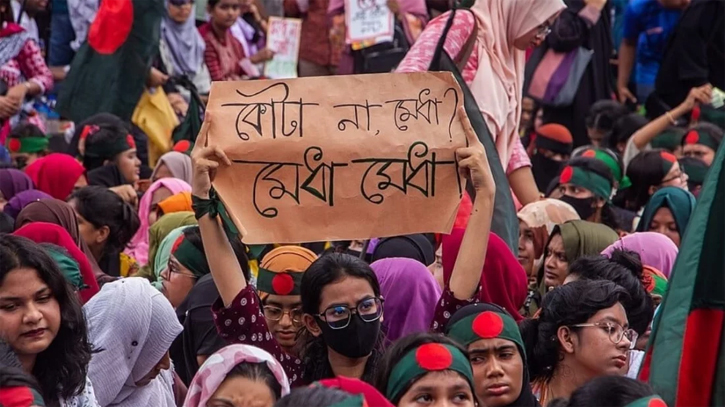 কোটা না, মেধা?
মেধা মেধা।